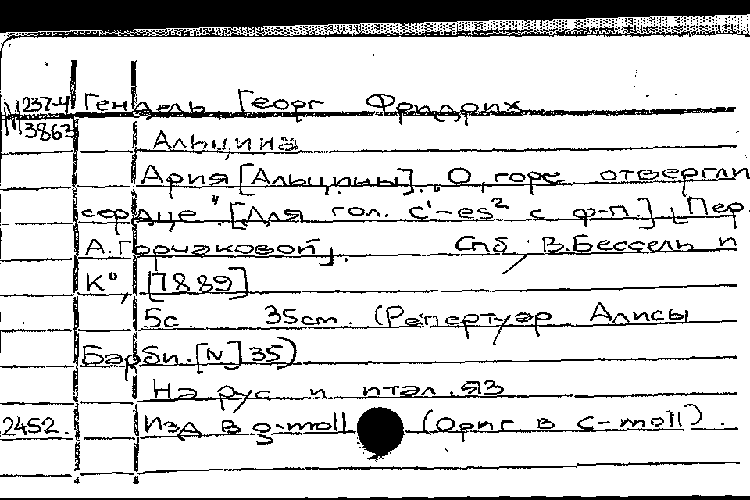 М 237-4 Гендель Георг Фридрих
3862
Альцина
Ария [Альцины] „О, горе отвергли
сердце". [Для гол. c¹-es² с ф-п.] [Пер.
А. Горчаковой]. Спб, В. Бессель и
К°, [1889]
5с 35cm. (Репертуар Алисы
Барби. [N] 35)
На рус и итал. яз
2452. Изд в g-moll (Ориг в c-moll).